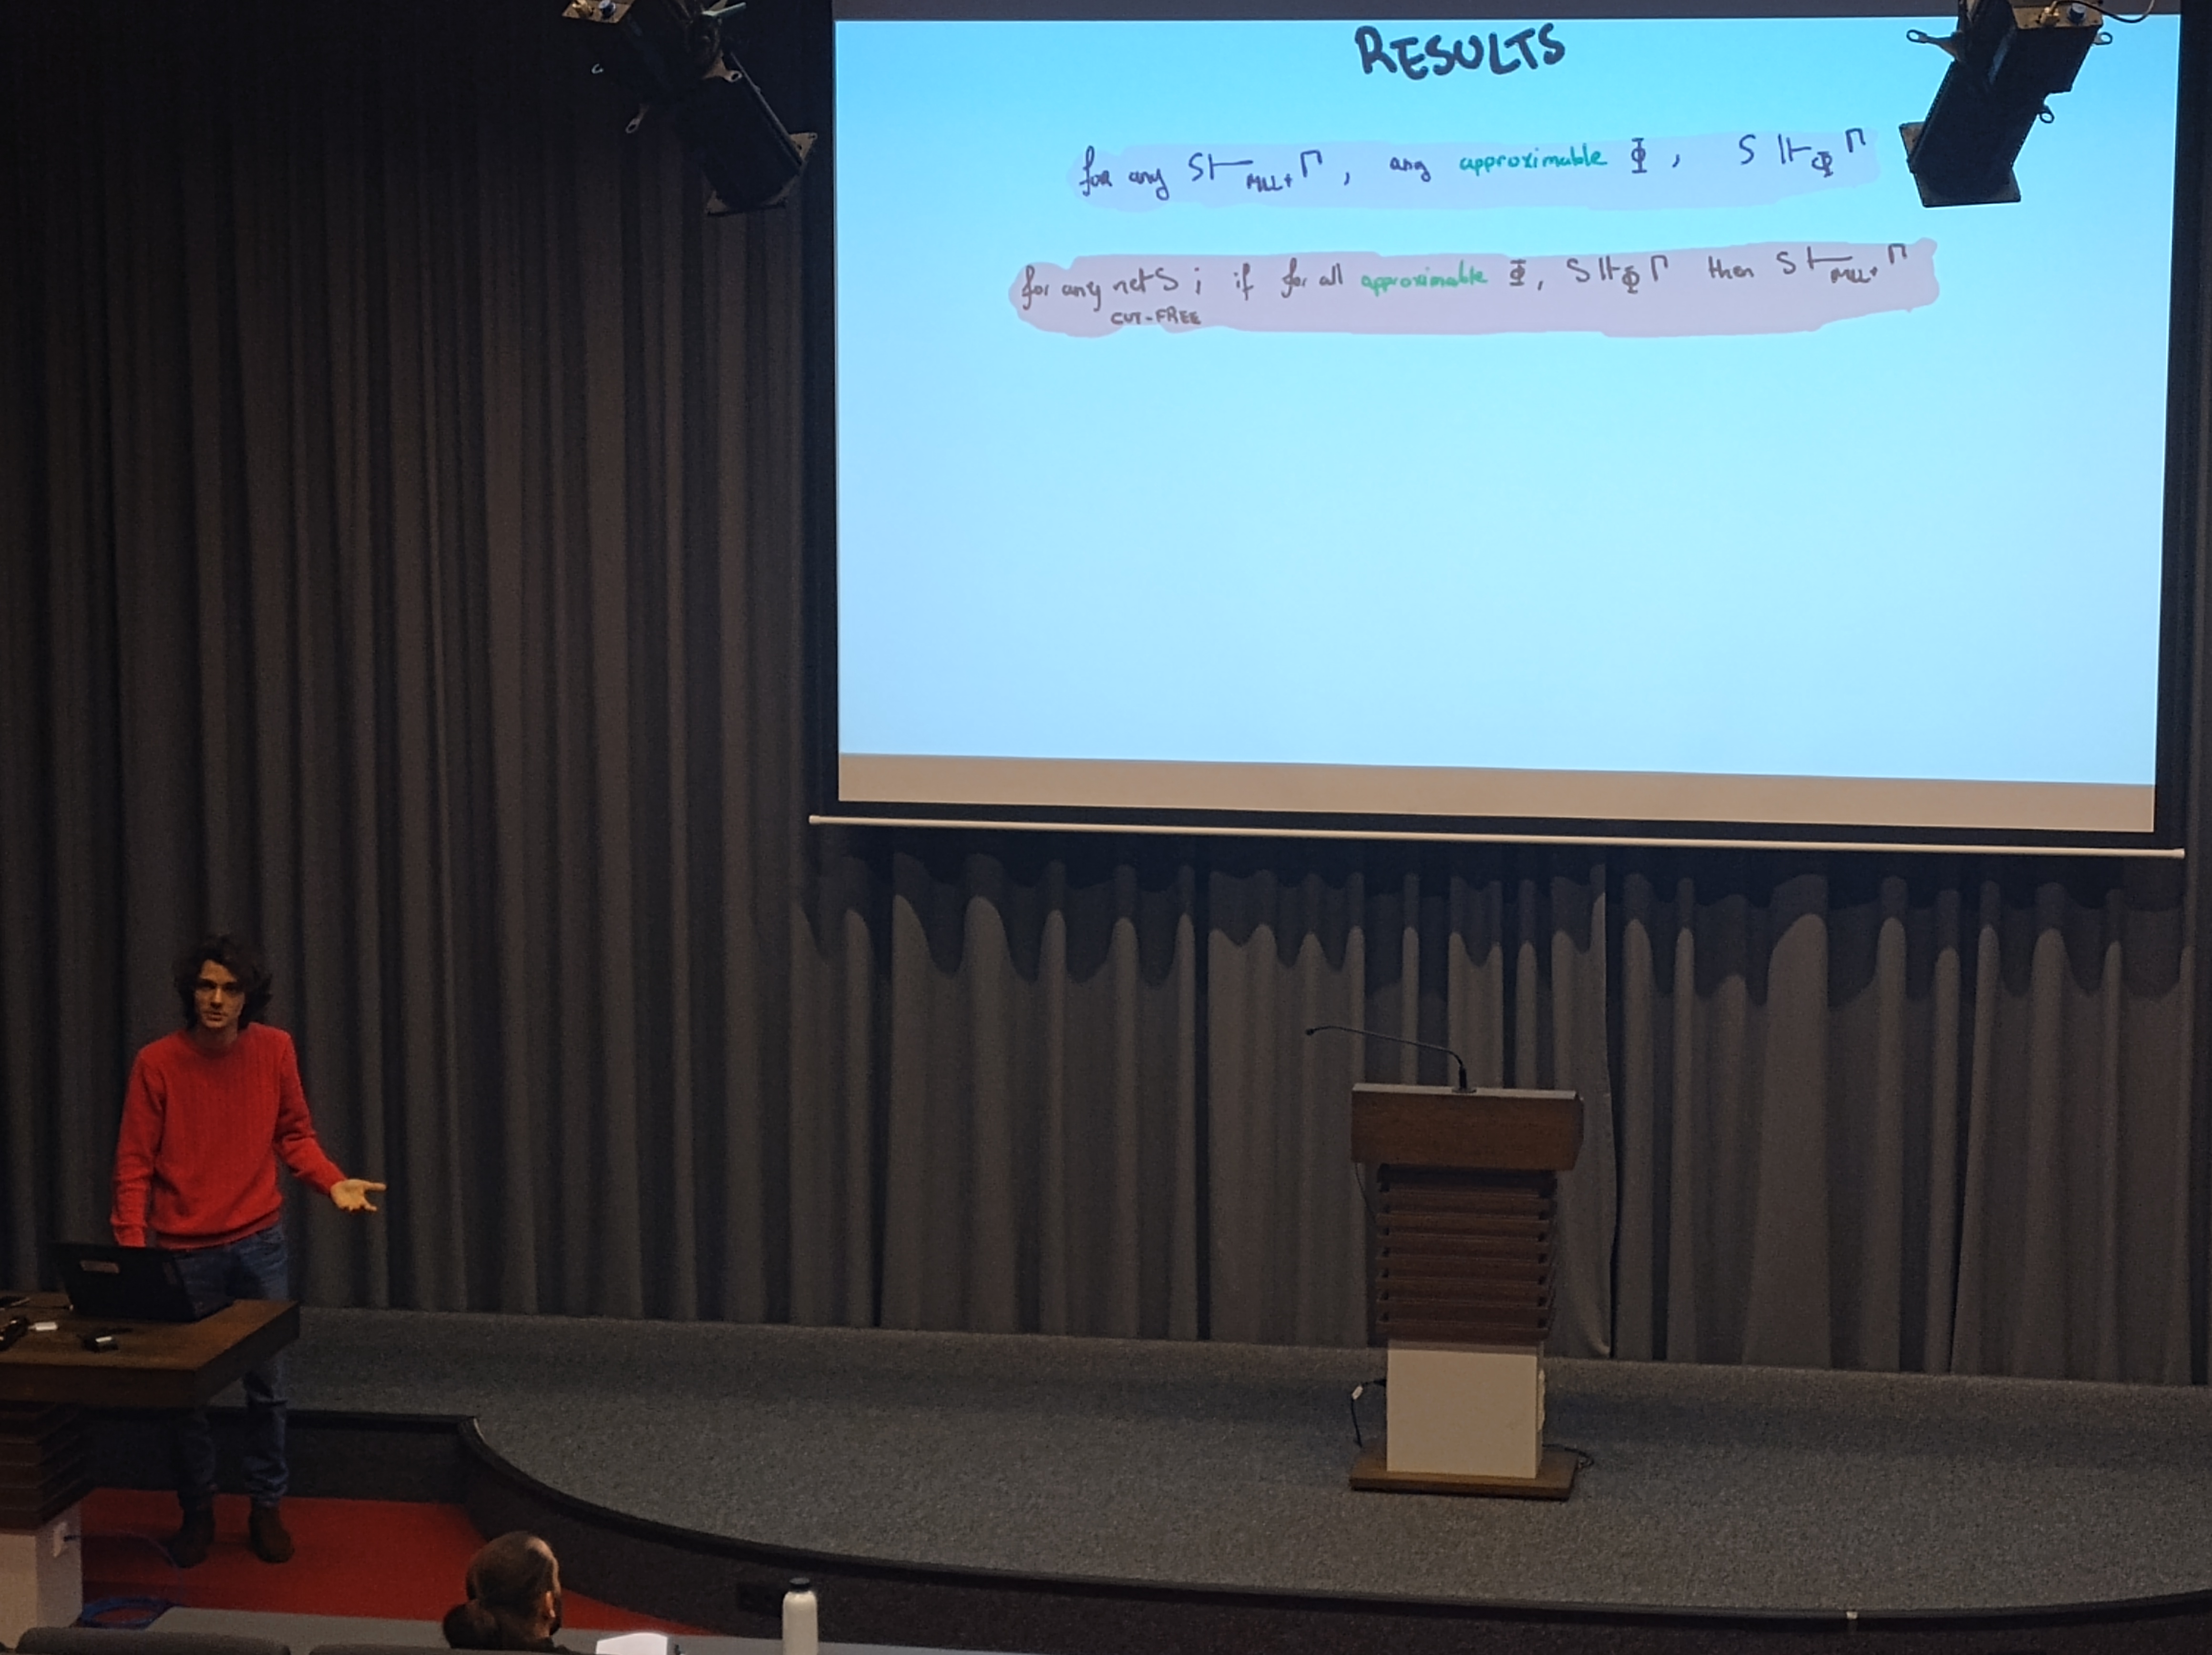 RESULTS
for any S ⊢MLL+ Γ, any approximable Φ, S ⊩Φ Γ
for any net S ; if for all approximable Φ, S ⊩Φ Γ then S ⊢MLL+ Γ
CUT-FREE